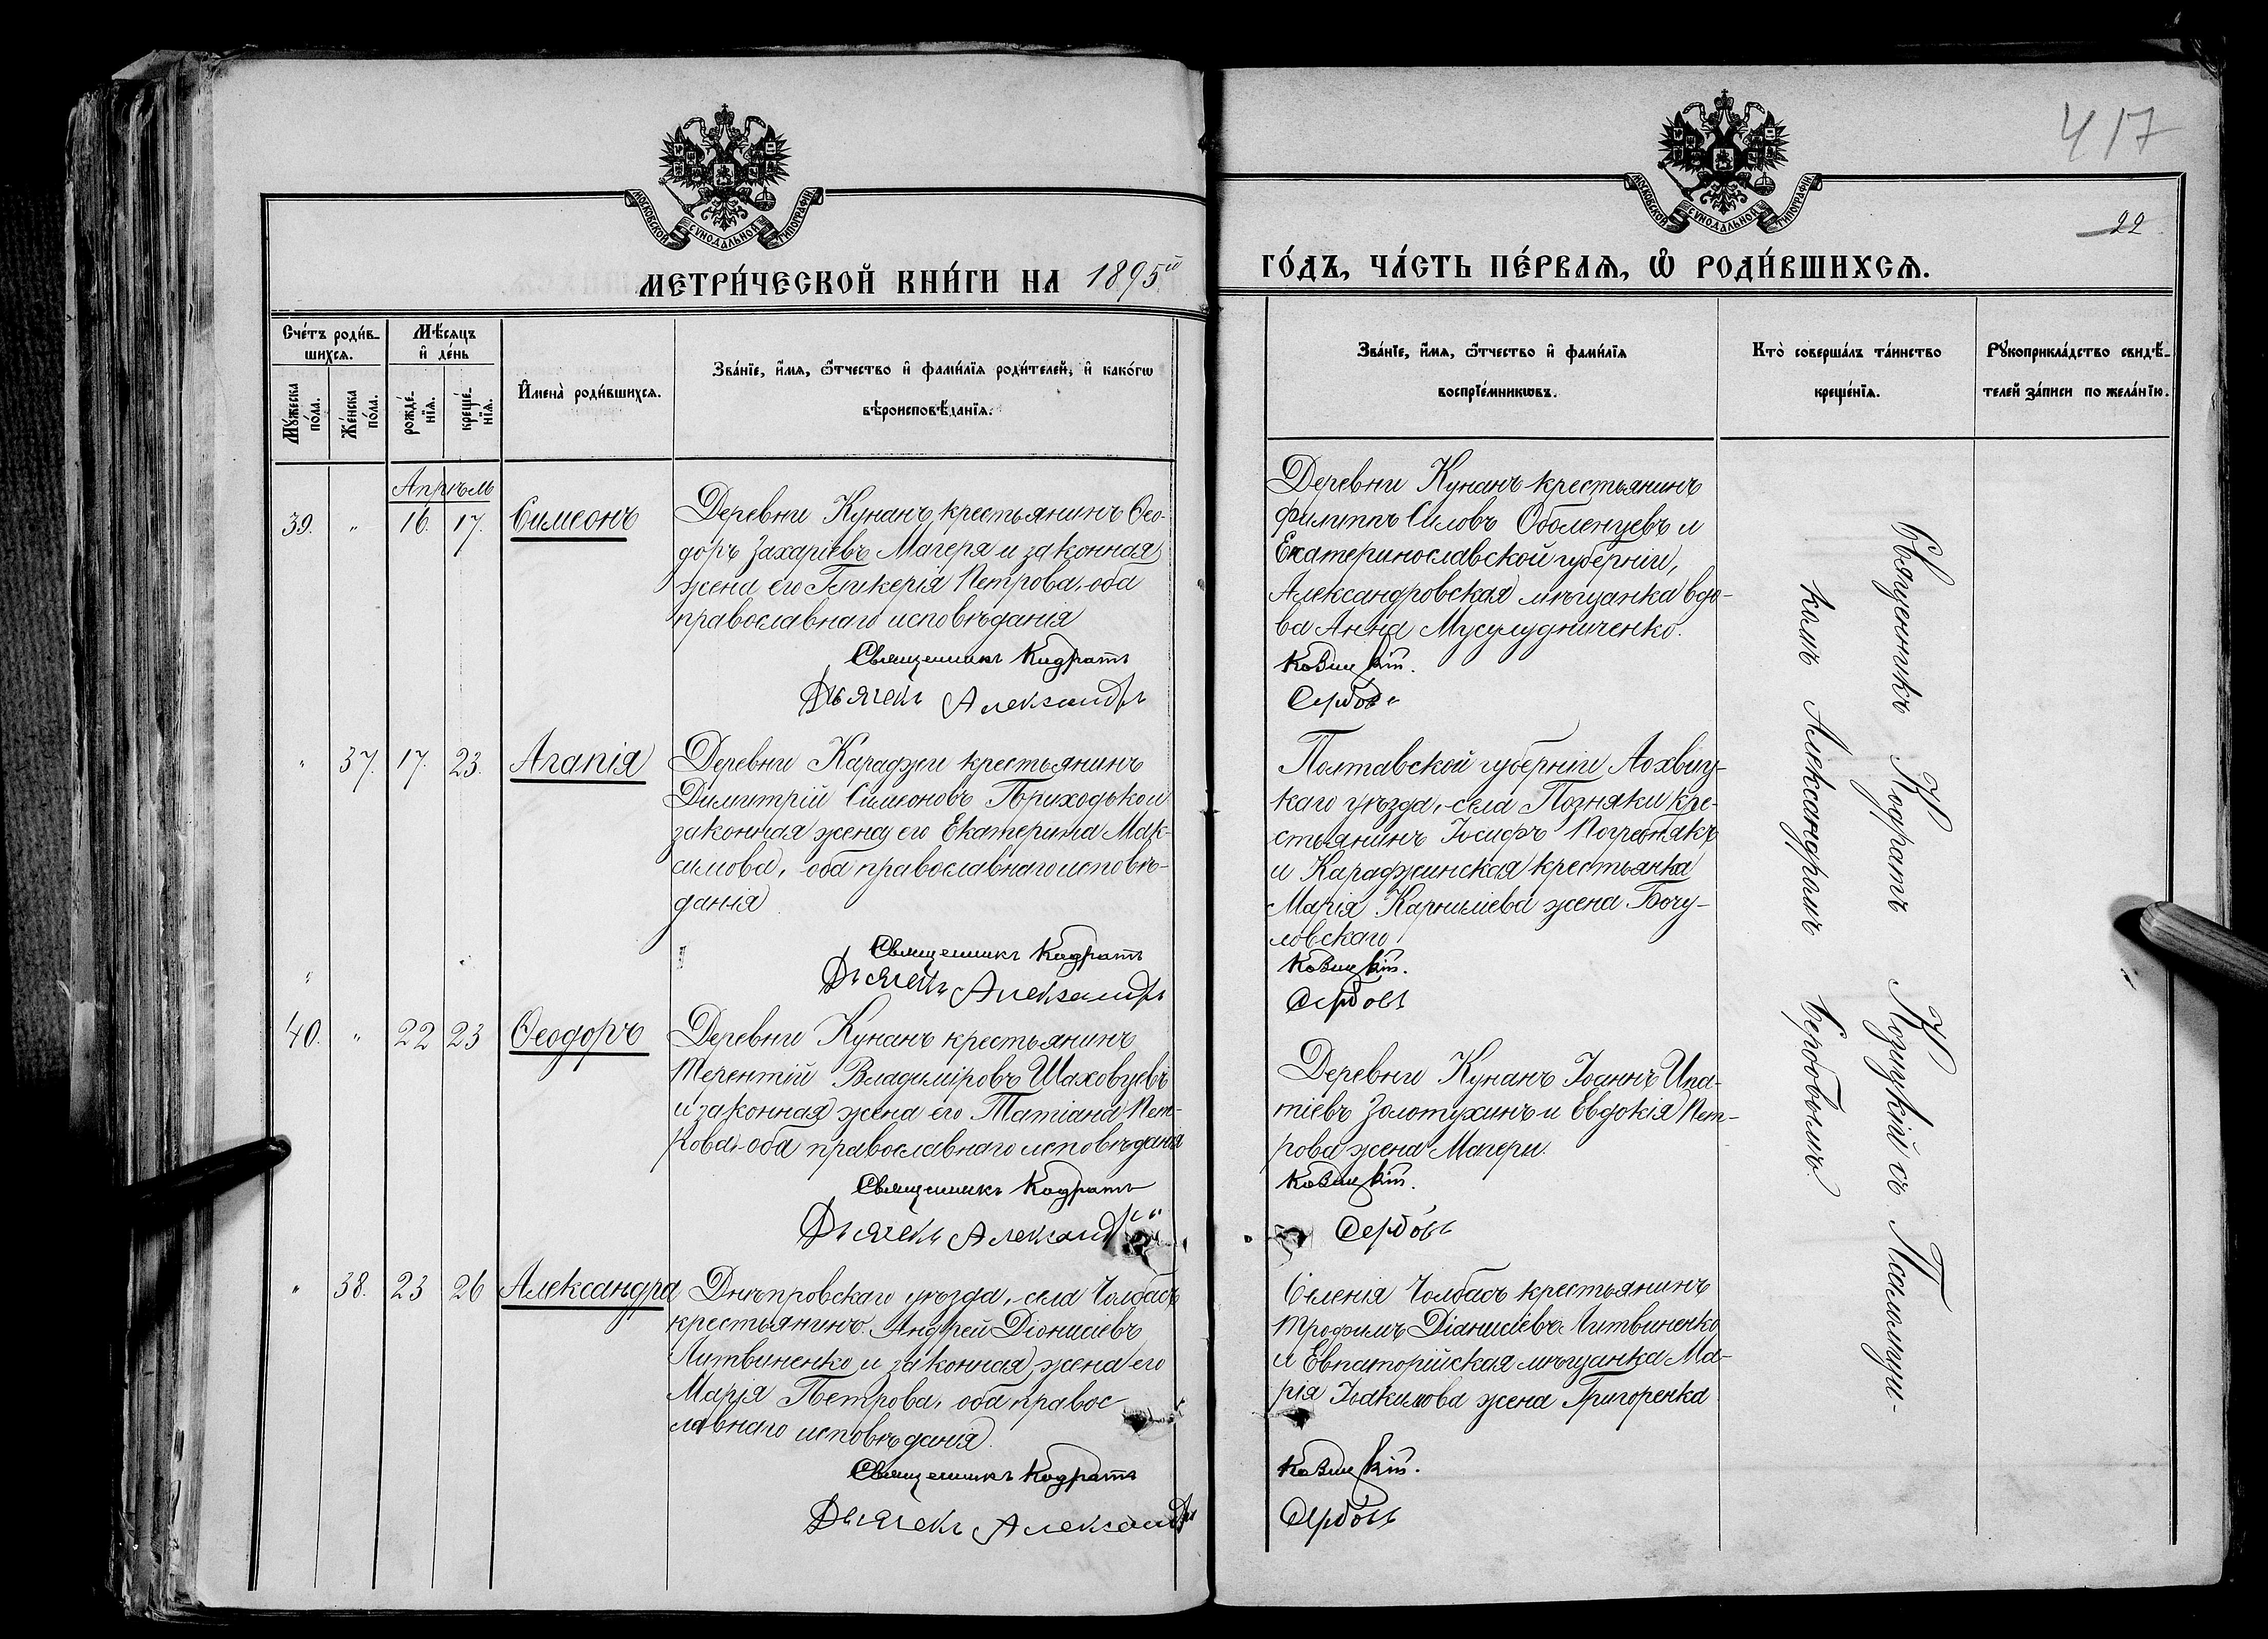 417
22
МОСКОВСКОЙ СѴНОДАЛЬНОЙ ТИПОГРАФІИ.
МОСКОВСКОЙ СѴНОДАЛЬНОЙ ТИПОГРАФІИ.
МЕТРИ́ЧЕСКОЙ КНИ́ГИ НА 1895й
ГО́ДЪ, ЧА́СТЬ ПЕ́РВАѦ, Ѽ РОДИ́ВШИХСѦ.
Сче́тъ роди́в-
шихсѧ.
Мѣ́сѧцъ
и҆ де́нь
Мꙋ́жеска
по́ла.
Же́нска
по́ла.
рожде́-
нїѧ.
креще́-
нїѧ.
И҆мена̀ роди́вшихсѧ.
Зва́нїе, и҆́мѧ, ѻ҆́тчество и҆ фами́лїѧ роди́телей, и҆ како́гѡ
вѣроисповѣ́данїѧ.
Зва́нїе, и҆́мѧ, ѻ҆́тчество и҆ фами́лїѧ
воспрїе́мникѡвъ.
Кто̀ соверша́лъ та́инство
креще́нїѧ.
Рꙋкоприкла́дство свидѣ́-
телей за́писи по жела́нїю.
Апрѣль
39. " 16. 17. Симеонъ
Деревни Кунанъ крестьянинъ Ѳео-
доръ Захаріевъ Магеря и законная
жена его Гликерія Петрова, оба
православнаго исповѣданія
Священникъ Кодратъ
Дьячекъ Александръ
Деревни Кунанъ крестьянинъ
Филиппъ Силовъ Оболенцевъ и
Екатеринославской губерніи,
Александровская мѣщанка вдо-
ва Анна Мусулудниченко.
Козицкій.
Сербовъ
" 37. 17. 23. Агапія
Деревни Караджи крестьянинъ
Димитрій Симеоновъ Приходько и
законная жена его Екатерина Мак-
симова, оба православнаго исповѣ-
данія
Священникъ Кодратъ
Дьячекъ Александръ
Полтавской губерніи Лохвиц-
каго уѣзда, села Позняки кре-
стьянинъ Іосифъ Погребнякъ
и Караджинская крестьянка
Марія Карнилieва жена Богу-
ловскаго
Козицкій.
Сербовъ
40. " 22 23 Ѳеодоръ
Деревни Кунанъ крестьянинъ
Терентій Владиміровъ Шаховцевъ
и законная жена его Татіана Пет-
рова, оба православнаго исповѣданія
Священникъ Кодратъ
Дьячекъ Александръ
Деревни Кунанъ Іоаннъ Ипа-
тіевъ Золотухинъ и Евдокія Пет-
рова жена Магери.
Козицкій.
Сербовъ
" 38. 23 26 Александра
Днѣпровскаго уѣзда, села Чолбасъ
крестьянинъ Андрей Діонисіевъ
Литвиненко и законная жена его
Марія Петрова, оба правос-
лавнаго исповѣданія.
Священникъ Кодратъ
Дьячекъ Александръ
Селенія Чолбасъ крестьянинъ
Трофимъ Діанисіевъ Литвиненко
и Евпаторійская мѣщанка Ма-
рія Іоакимова жена Григоренка
Козицкій.
Сербовъ
Священникъ Кодратъ Козицкій съ Псаломщи-
комъ Александромъ Сербовымъ.